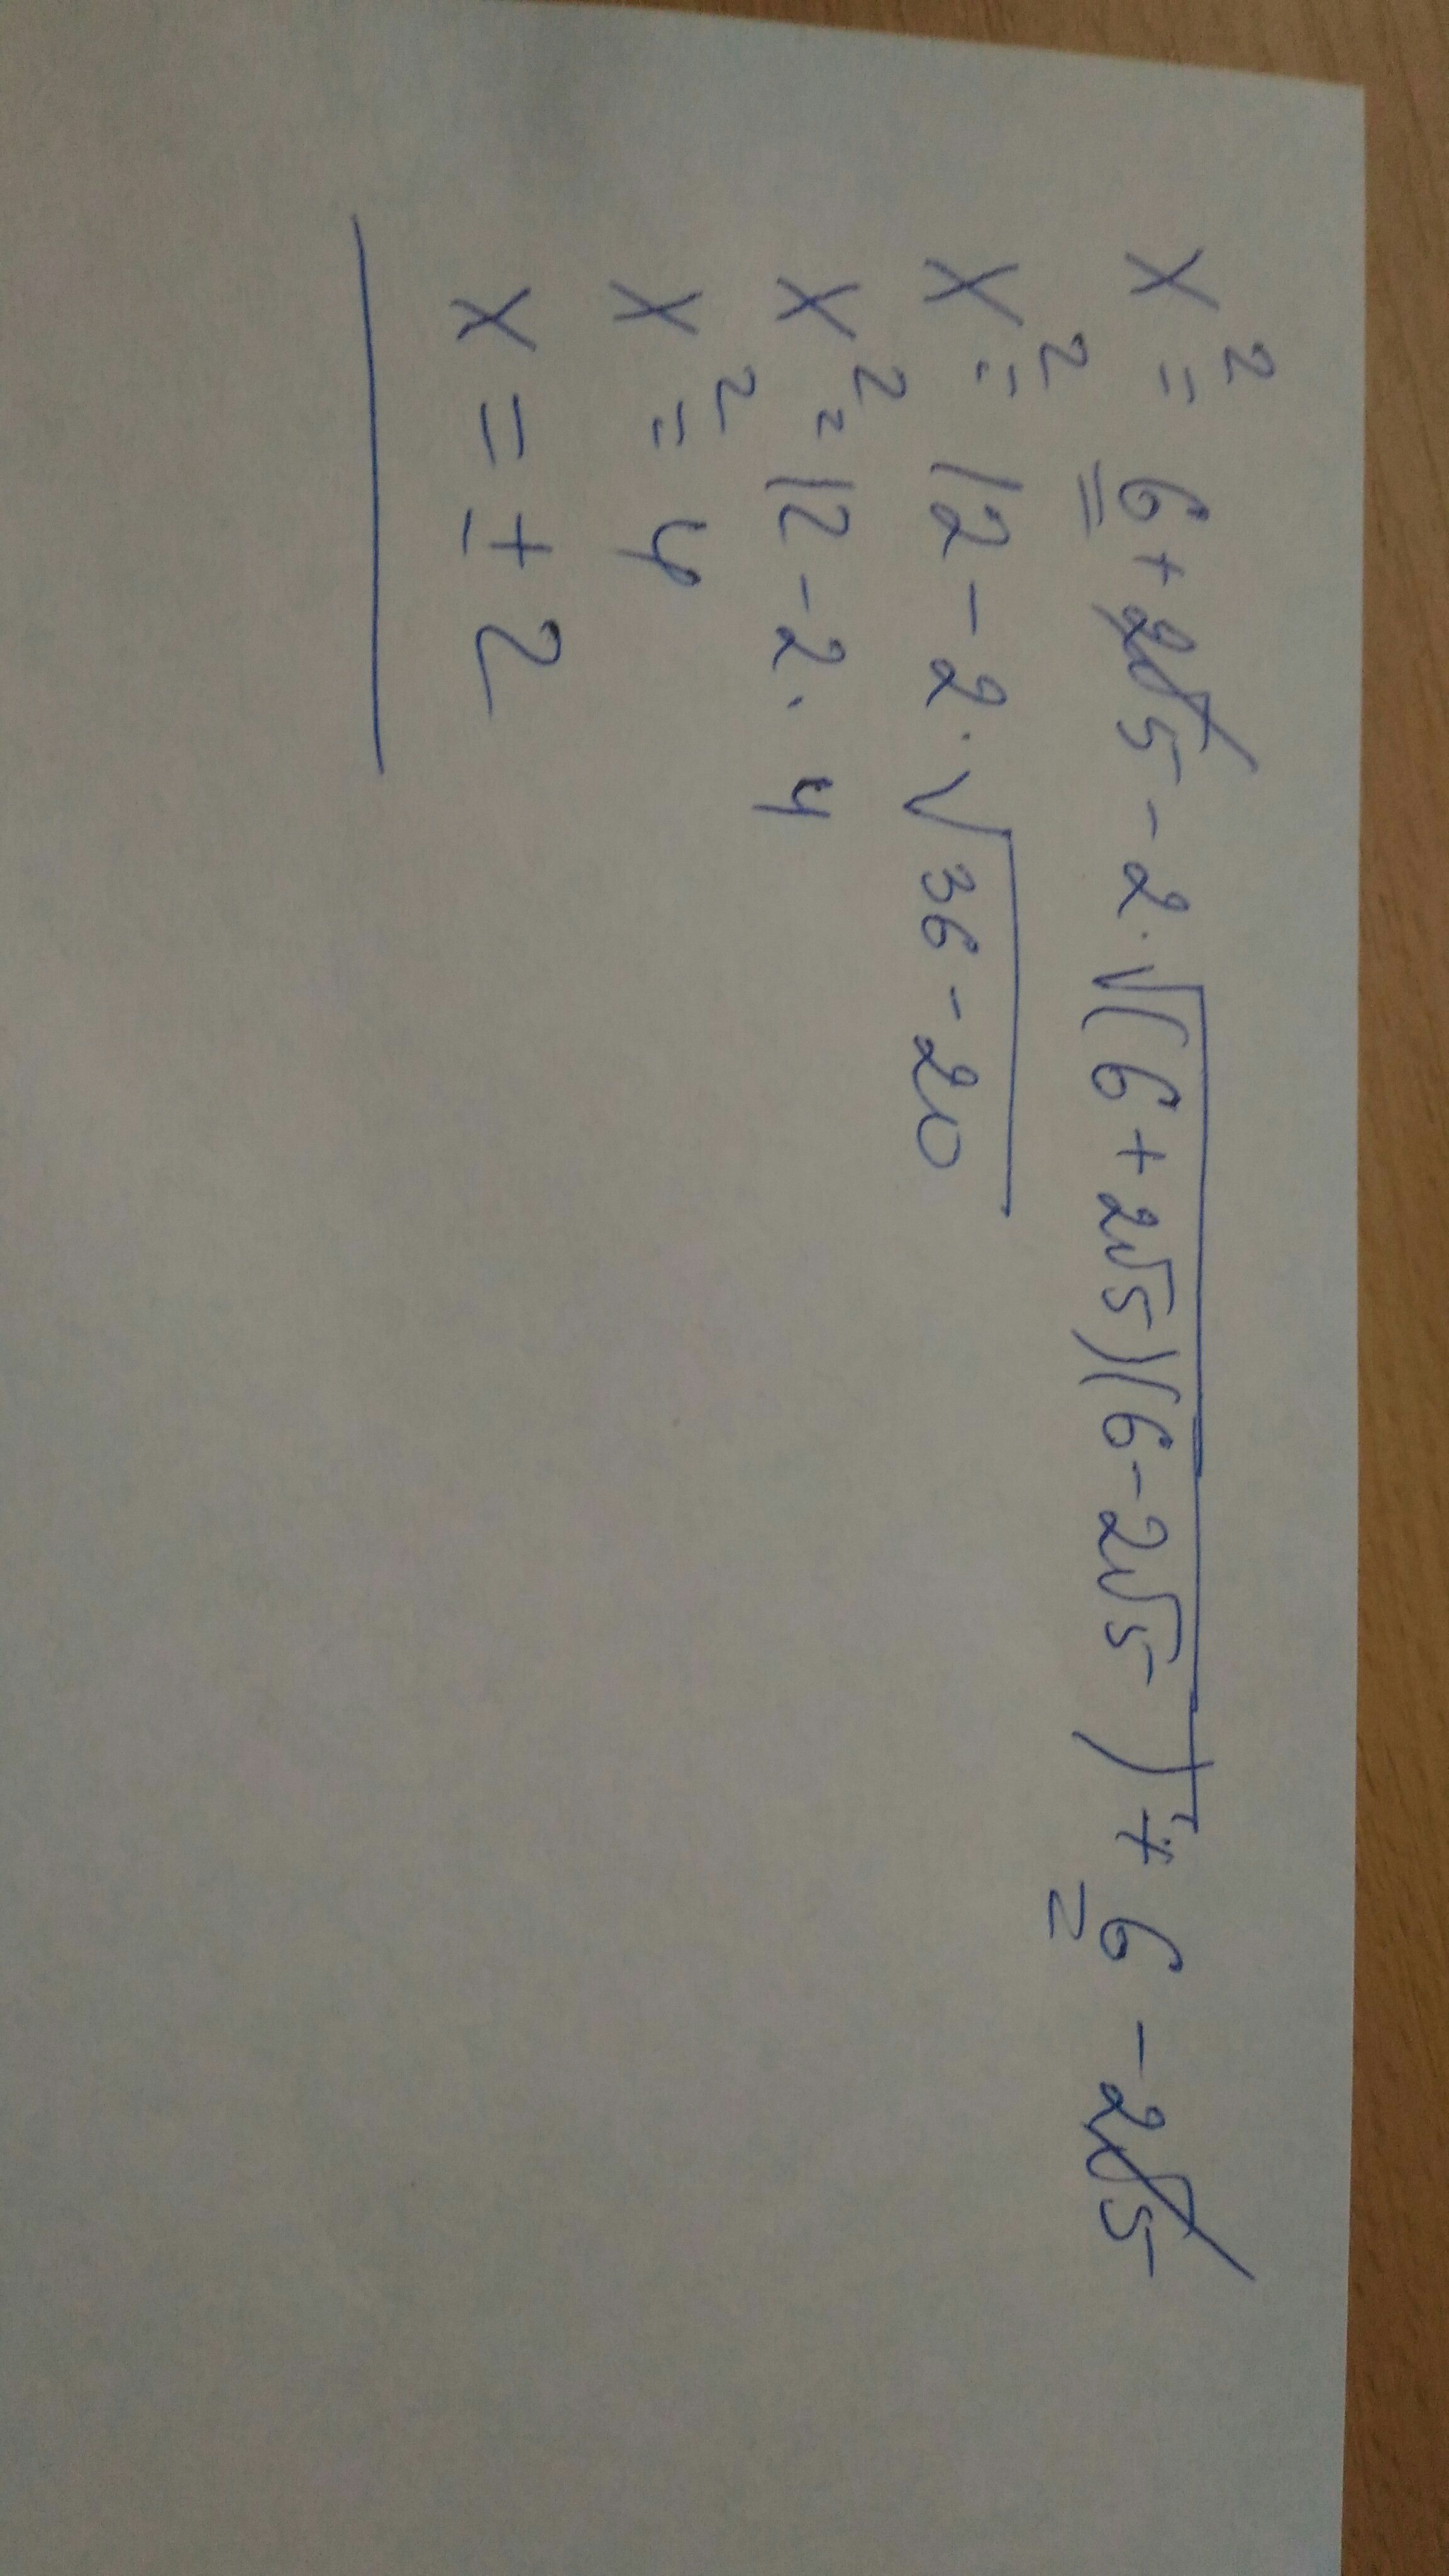 x² = 6 + 2√5 - 2·√((6 + 2√5)(6 - 2√5)) + 6 - 2√5
x² = 12 - 2·√(36 - 20)
x² = 12 - 2·4
x² = 4
x = ± 2